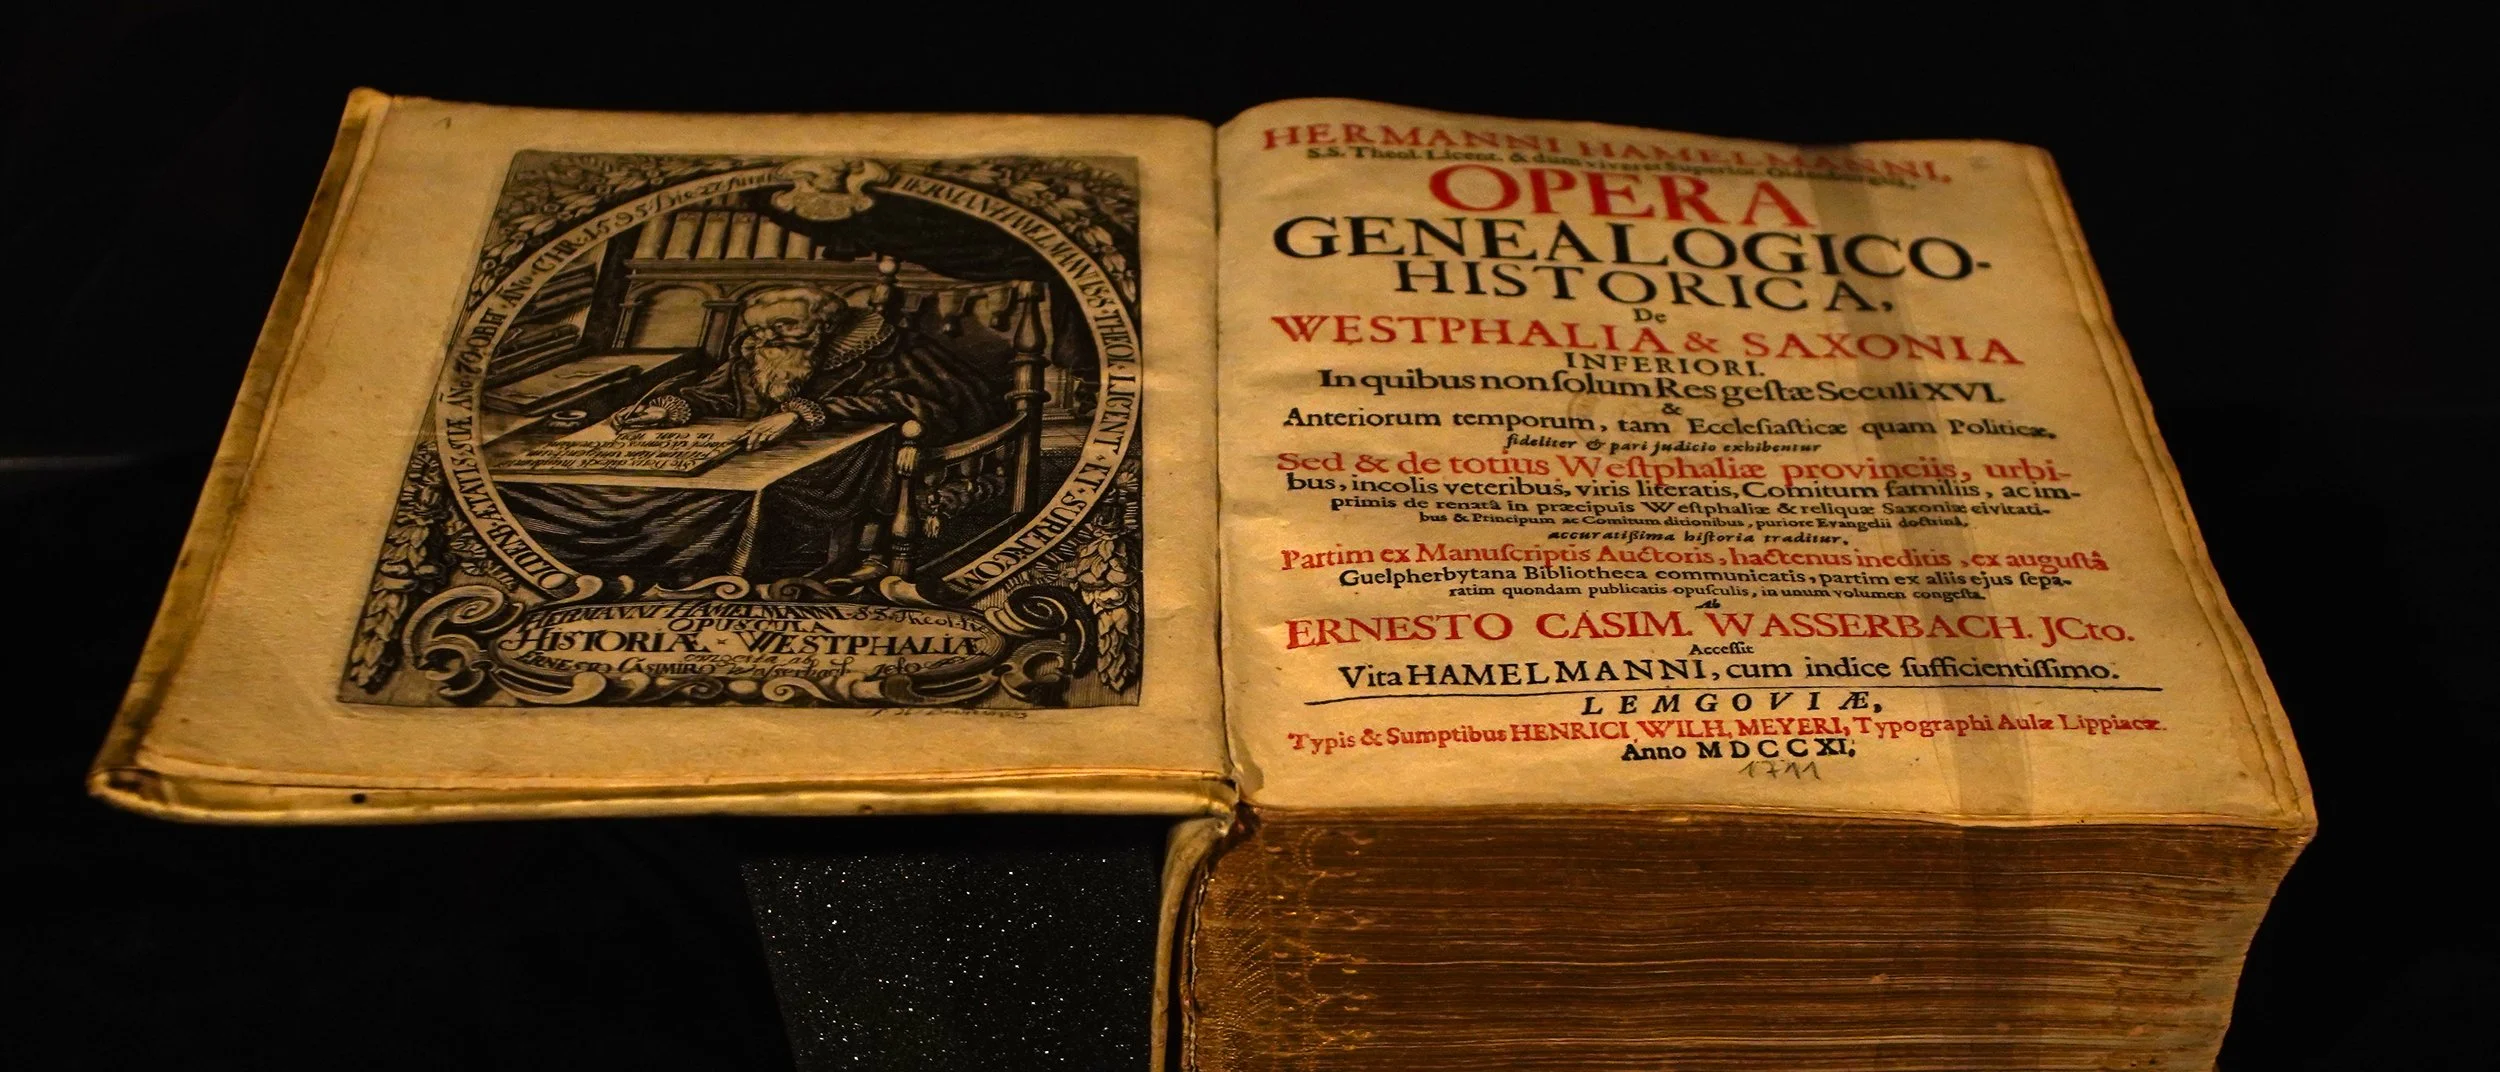 1
HERMANNUS HAMELMANNUS·S·THEOL·LICENT·ET·SUPERATT·OLDENB·ÆTATIS·SUÆ Añ 70·OBIIT·ANo·CHR·1595·Die 27 Junii
HERMANNI·HAMELMANNI·SS·Theol·Lic
OPUSCULA
HISTORIÆ·WESTPHALIÆ
congesta ab
ERNESTO CASIMIRO Wasserbach
HERMANNI HAMELMANNI,
S.S. Theol. Licent. & dum viveret Superior. Oldenburgens,
OPERA
GENEALOGICO-
HISTORICA,
De
WESTPHALIA & SAXONIA
INFERIORI.
In quibus non ſolum Res geſtæ Seculi XVI.
&
Anteriorum temporum, tam Eccleſiaſticæ quam Politicæ,
fideliter & pari judicio exhibentur
Sed & de totius Weſtphaliæ provinciis, urbi-
bus, incolis veteribus, viris literatis, Comitum familiis, ac im-
primis de renatâ in præcipuis Weſtphaliæ & reliquæ Saxoniæ civitati-
bus & Principum ac Comitum ditionibus, puriore Evangelii doctrinâ,
accuratißima hiſtoria traditur,
Partim ex Manuſcriptis Auctoris, hactenus ineditis, ex auguſtâ
Guelpherbytana Bibliotheca communicatis, partim ex aliis ejus ſepa-
ratim quondam publicatis opuſculis, in unum volumen congeſta.
Ab
ERNESTO CASIM. WASSERBACH. JCto.
Acceſſit
Vita HAMELMANNI, cum indice ſufficientiſſimo.
LEMGOVIÆ,
Typis & Sumptibus HENRICI WILH. MEYERI, Typographi Aulæ Lippiacæ.
Anno MDCCXI.
1711